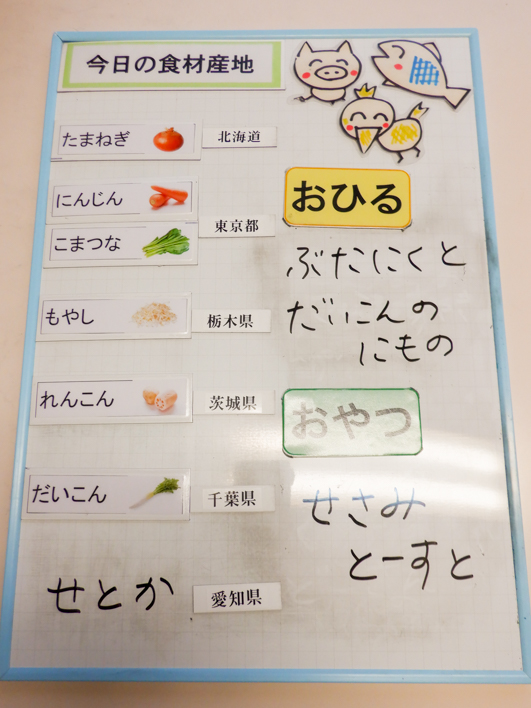 今日の食材産地
たまねぎ 北海道
にんじん
東京都
こまつな
もやし 栃木県
れんこん 茨城県
だいこん 千葉県
せとか 愛知県
おひる
ぶたにくと
だいこんの
にもの
おやつ
せさみ
とーすと